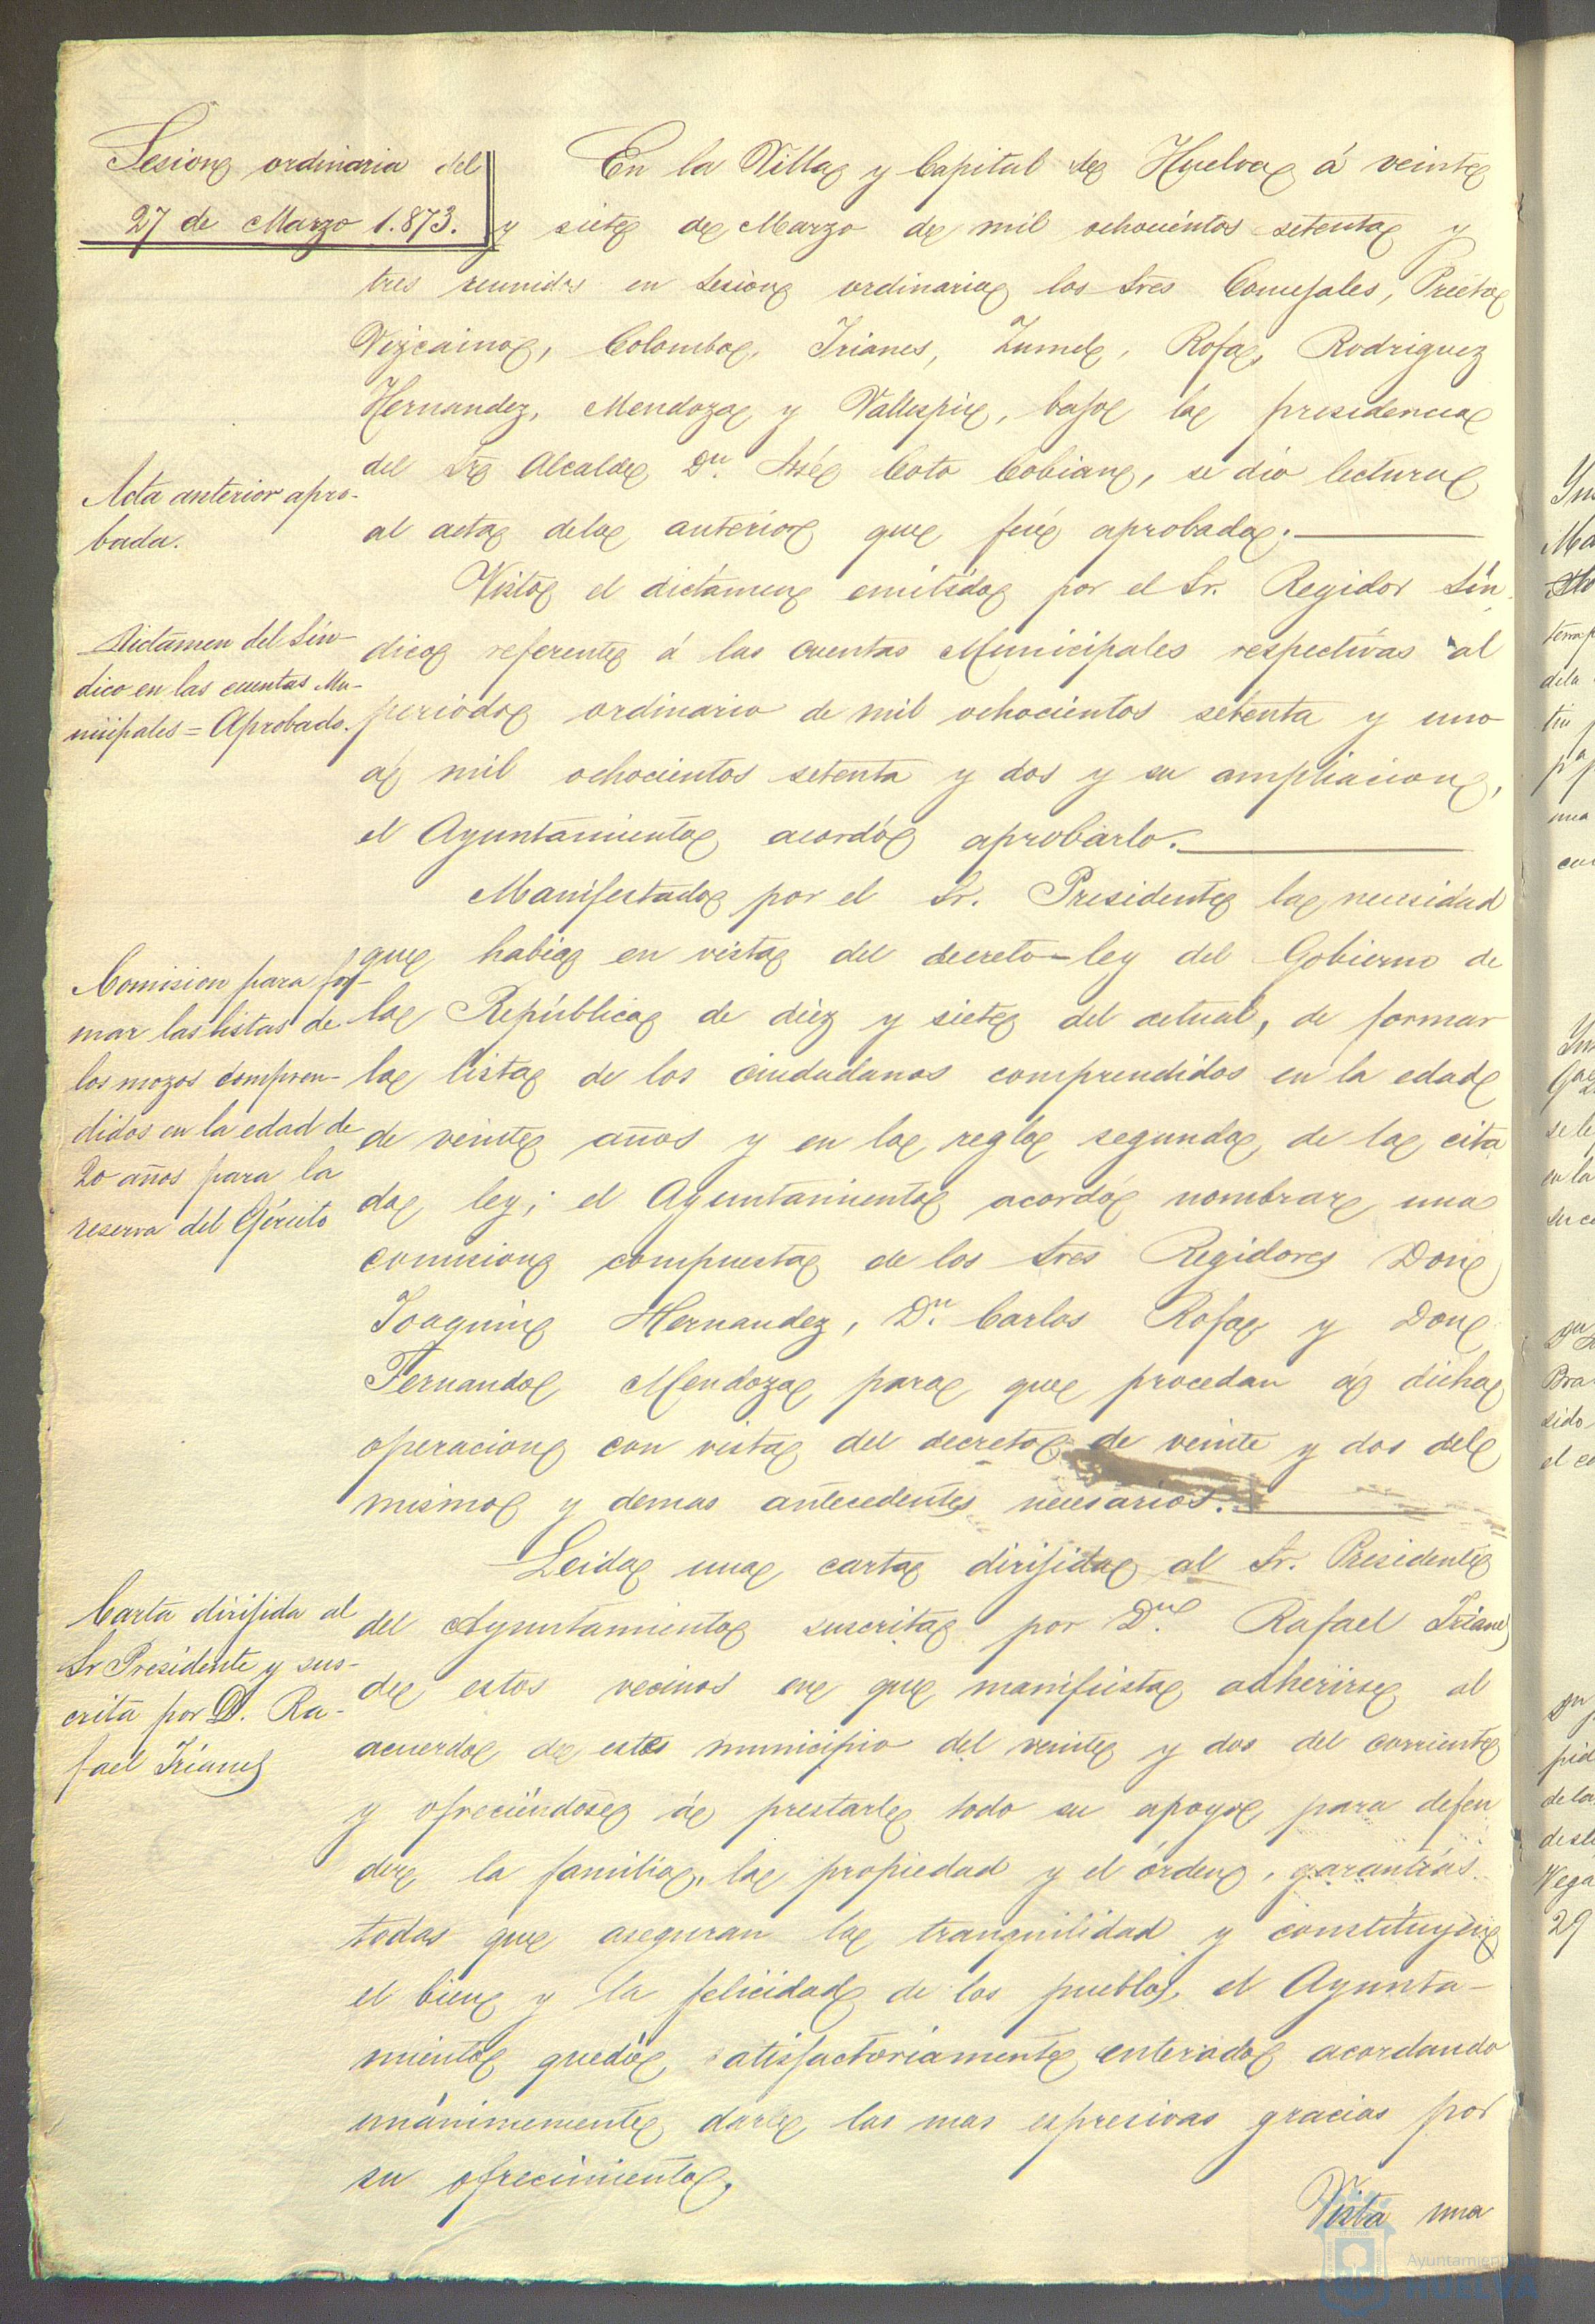 Sesion ordinaria del
27 de Marzo 1.873.
En la Villa y Capital de Huelva á veinte
y siete de Marzo de mil ochocientos setenta y
tres reunidos en Sesion ordinaria los Sres Concejales, Prieto
Vizcaino, Colombo, Trianes, Zumel, Rofa, Rodriguez
Hernandez, Mendoza y Vallespir, bajo la presidencia
del Sr Alcalde Dn. José Coto Cobian, se dio lectura
Acta anterior apro-
bada.
al acta dela anterior que fué aprobada.
Visto el dictámen emitido por el Sr. Regidor Sín
Dictamen del Sín-
dico en las cuentas Mu-
nicipales = Aprobado.
dico referente á las cuentas Municipales respectivas al
periodo ordinario de mil ochocientos setenta y uno
á mil ochocientos setenta y dos y su ampliacion,
el Ayuntamiento acordó aprobarlo.
Manifestado por el Sr. Presidente la necesidad
Comision para for-
mar las listas de
los mozos compren-
didos en la edad de
20 años para la
reserva del Ejército
que habia en vista del decreto-ley del Gobierno de
la República de diez y siete del actual, de formar
la lista de los ciudadanos comprendidos en la edad
de veinte años y en la regla segunda de la cita
da ley; el Ayuntamiento acordó nombrar una
comision compuesta de los Sres Regidores Don
Joaquin Hernandez, Dn. Carlos Rofa y Don
Fernando Mendoza para que procedan á dicha
operacion con vista del decreto de veinte y dos del
mismo y demas antecedentes necesarios.
Leida una carta dirijida al Sr. Presidente
Carta dirijida al
Sr Presidente y sus-
crita por D. Ra-
fael Trianes
del Ayuntamiento suscrita por Dn. Rafael Trianes
de estos vecinos en que manifiesta adherirse al
acuerdo de este municipio del veinte y dos del corriente
y ofreciéndose á prestarle todo su apoyo para defen
der la familia, la propiedad y el órden, garantías
todas que aseguran la tranquilidad y constituyen
el bien y la felicidad de los pueblos, el Ayunta-
miento quedó satisfactoriamente enterado acordando
unánimemente darle las mas espresivas gracias por
su ofrecimiento.
Vista una
Ayuntamien
HUELVA